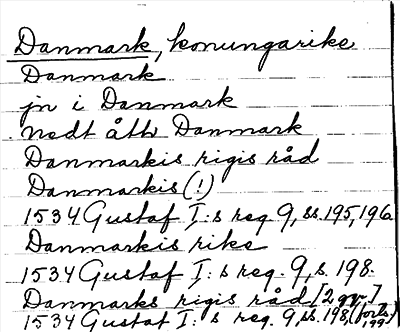 Danmark, konungarike
Danmark
jn i Danmark
nedt åth Danmark
Danmarkis rigis råd
Danmarkis (!)
1534 Gustaf I:s reg. 9, ss. 195, 196.
Danmarkis rike
1534 Gustaf I:s reg. 9, s. 198.
Danmarks rigis råd [2 ggr]
1534 Gustaf I:s reg. 9, ss. 198, (forts.) 199